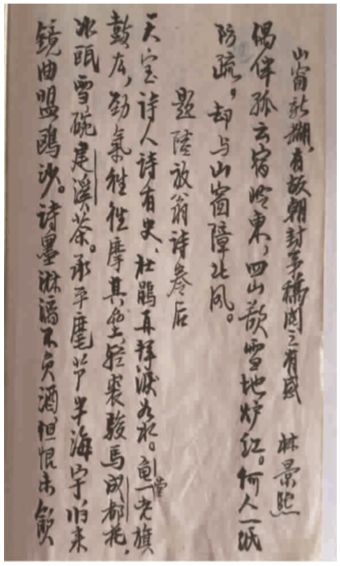 山窗新糊,有故朝封事稿阅之有感 林景熙
偶伴孤云宿岭東,四山欲雪地炉红。何人一纸
防疏,却与山窗障北风。
题陆放翁诗卷后
天宝诗人诗有史,杜鹃再拜泪如水。龟堂老旗
鼓,劲氣往往摩其垒。轻裘骏马成都花,
冰瓯雪碗建溪茶。承平麾节半海宇归来
镜曲盟鸥沙。诗墨淋漓不负酒但恨未飲